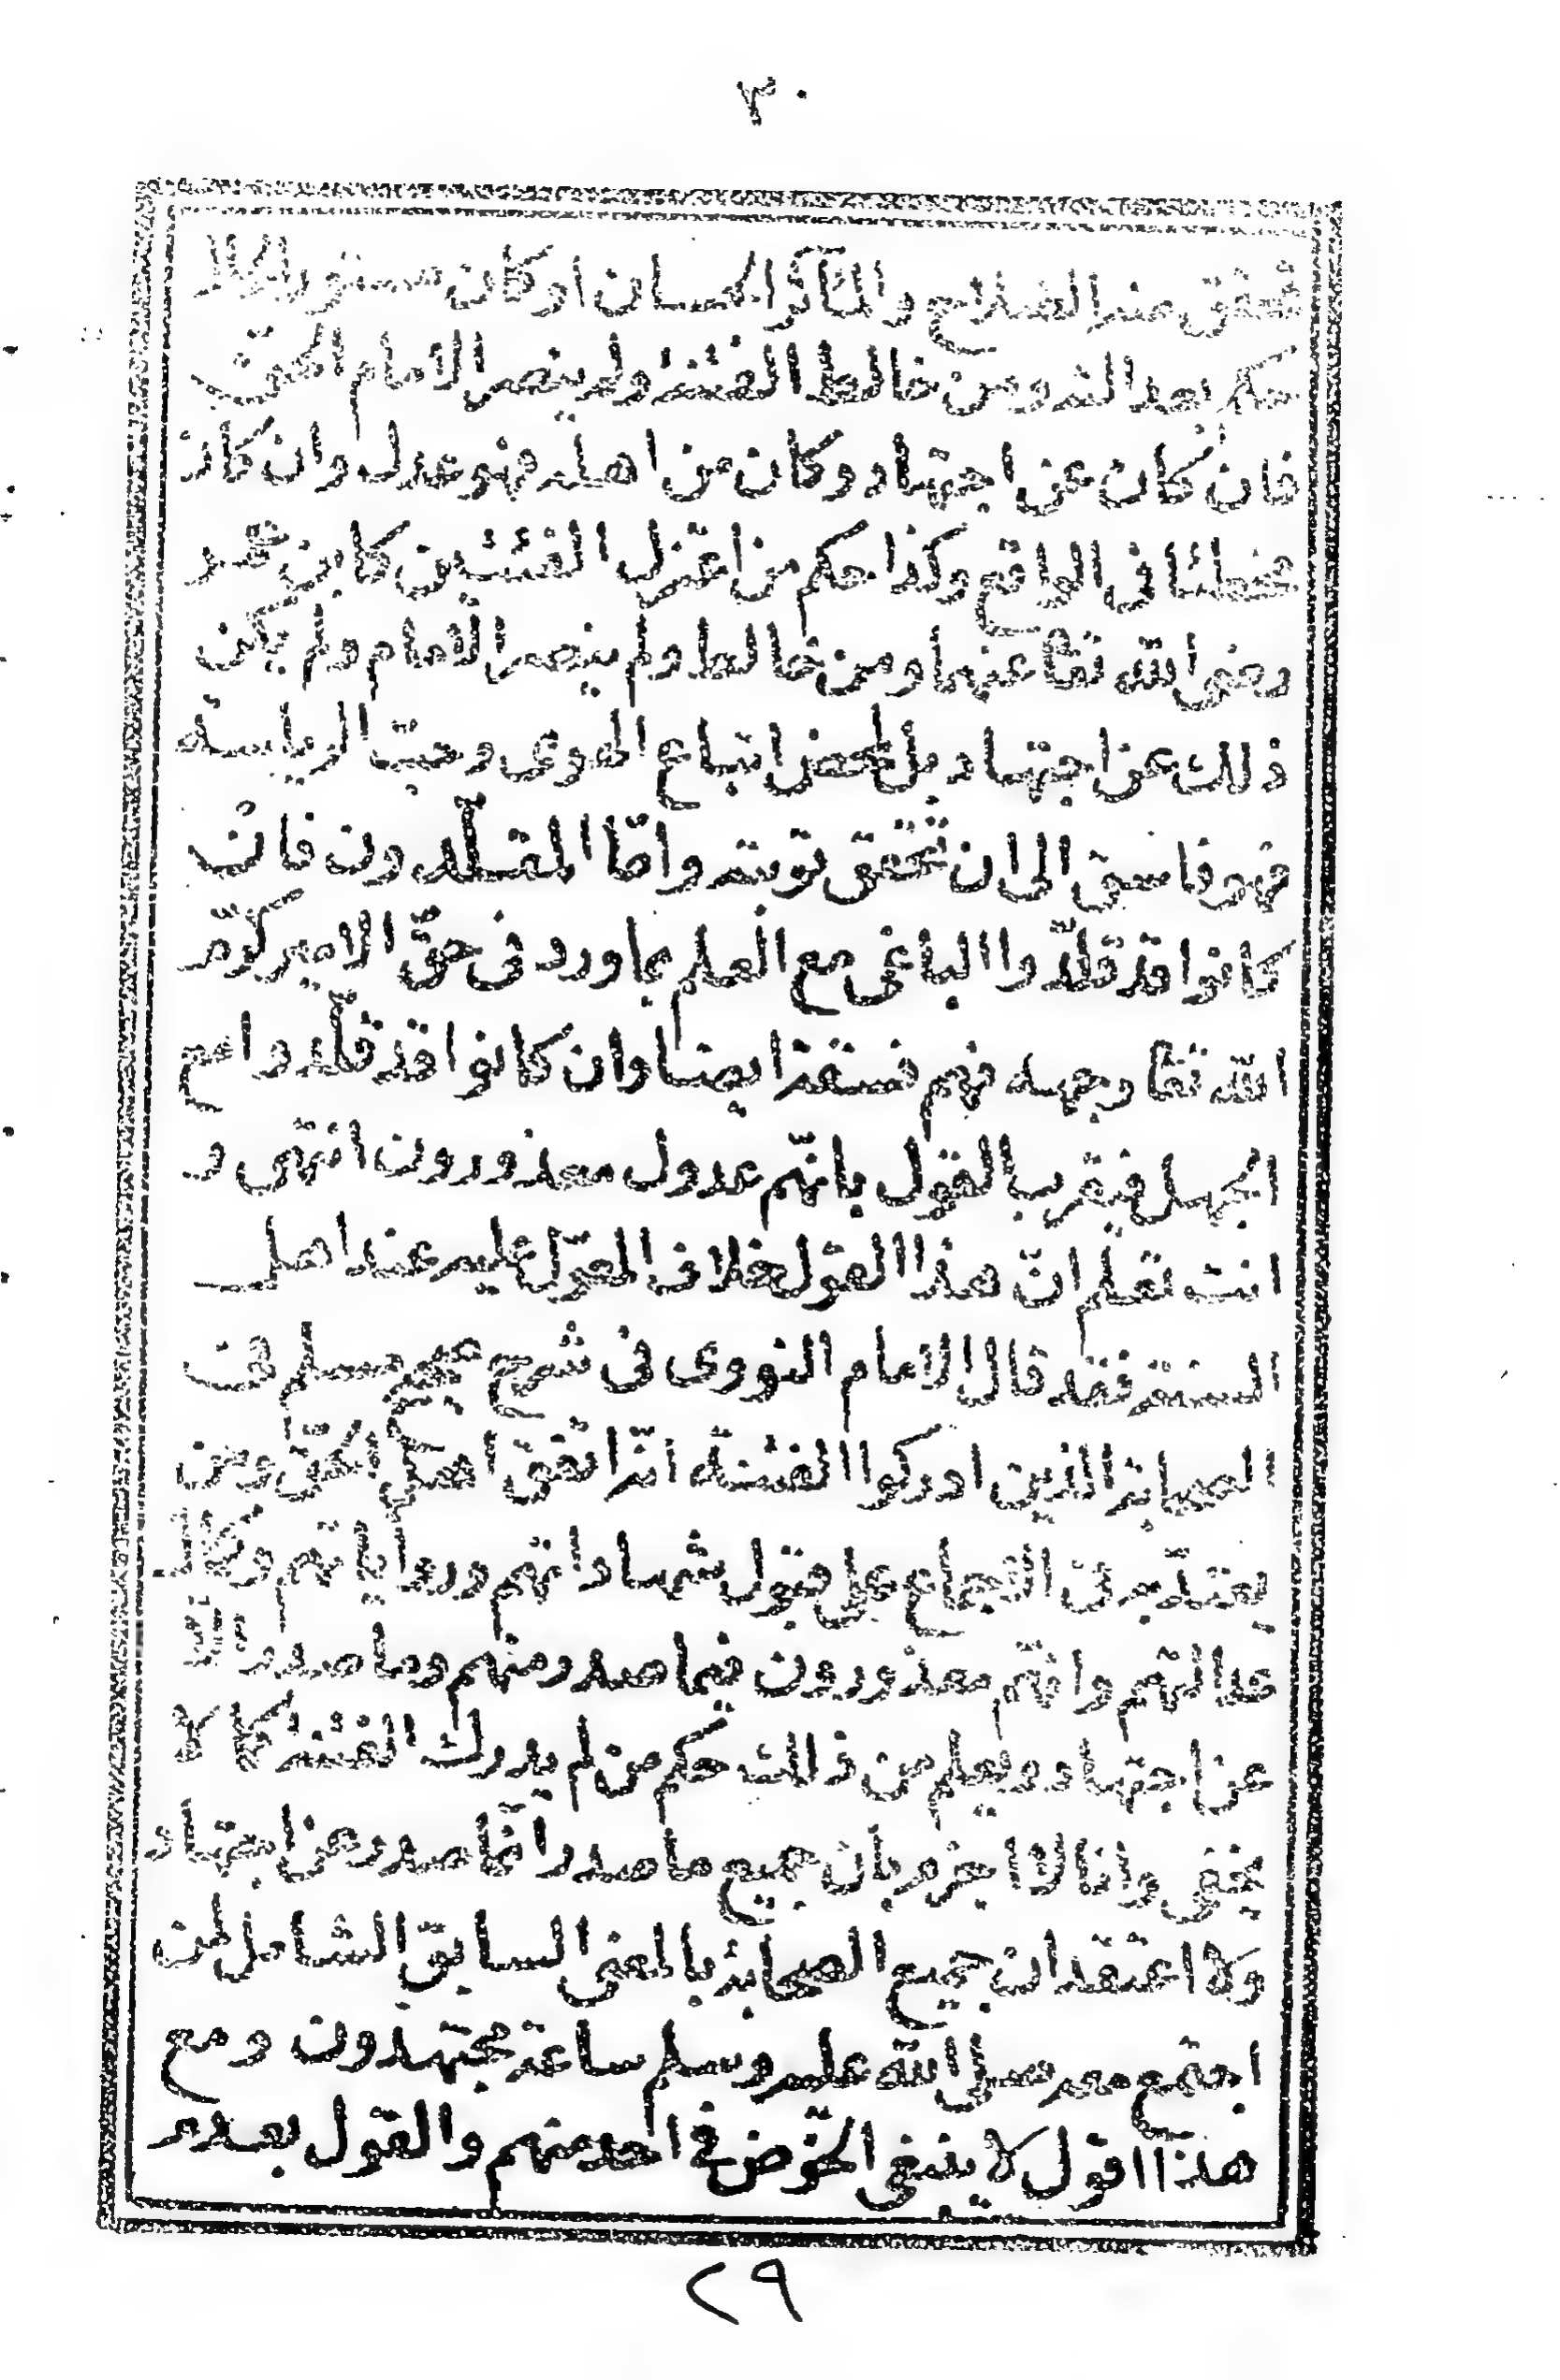 ٣٠
تحقق منه الصلاح والمآثر الحسان او كان مستور الحال
حكم بعدالته ومن خالط الفتنة ولم ينصر الامام الحق
فان كان عن اجتهاد وكان من اهله فهو عدل وان كان
مخطئا في الواقع وكذا حكم من اعتزل الفئتين كابن عمر
رضى الله تعا عنهما ومن خالط ولم ينصر الامام ولم يكن
ذلك عن اجتهاد بل لمحض اتباع الهوى وحبّ الرياسة
فهو فاسق الى ان تحقق توبته وامّا المقلّدون فان
كانوا قد قلّدوا الباغى مع العلم بما ورد فى حقّ الامير كرّم
الله تعا وجهه فهم فسقة ايضا وان كانوا قد قلّدوا مع
الجهل فيقرب القول بانّهم عدول معذورون انتهى و
انت تعلم انّ هذا القول خلاف المعوّل عليه عند اهل
السنة فقد قال الامام النووى فى شرح صحيح مسلم فى
الصحابة الذين ادركوا الفتنة انّه اتّفق اهل الحقّ ومن
يعتدّ به فى الاجماع على قبول شهاداتهم ورواياتهم وكمال
عدالتهم وانّهم معذورون فيما صدر منهم وما صدر الا
عن اجتهاد ويعلم من ذلك حكم من لم يدرك الفتنة كما لا
يخفى وانا لا اجزم بان جميع ما صدر انّما صدر عن اجتهاد
ولا اعتقد ان جميع الصحابة بالمعنى السابق الشامل لمن
اجتمع معه صلى الله عليه وسلم ساعة مجتهدون ومع
هذا اقول لا ينبغى الخوض في احد منهم والقول بعدم
٢٩